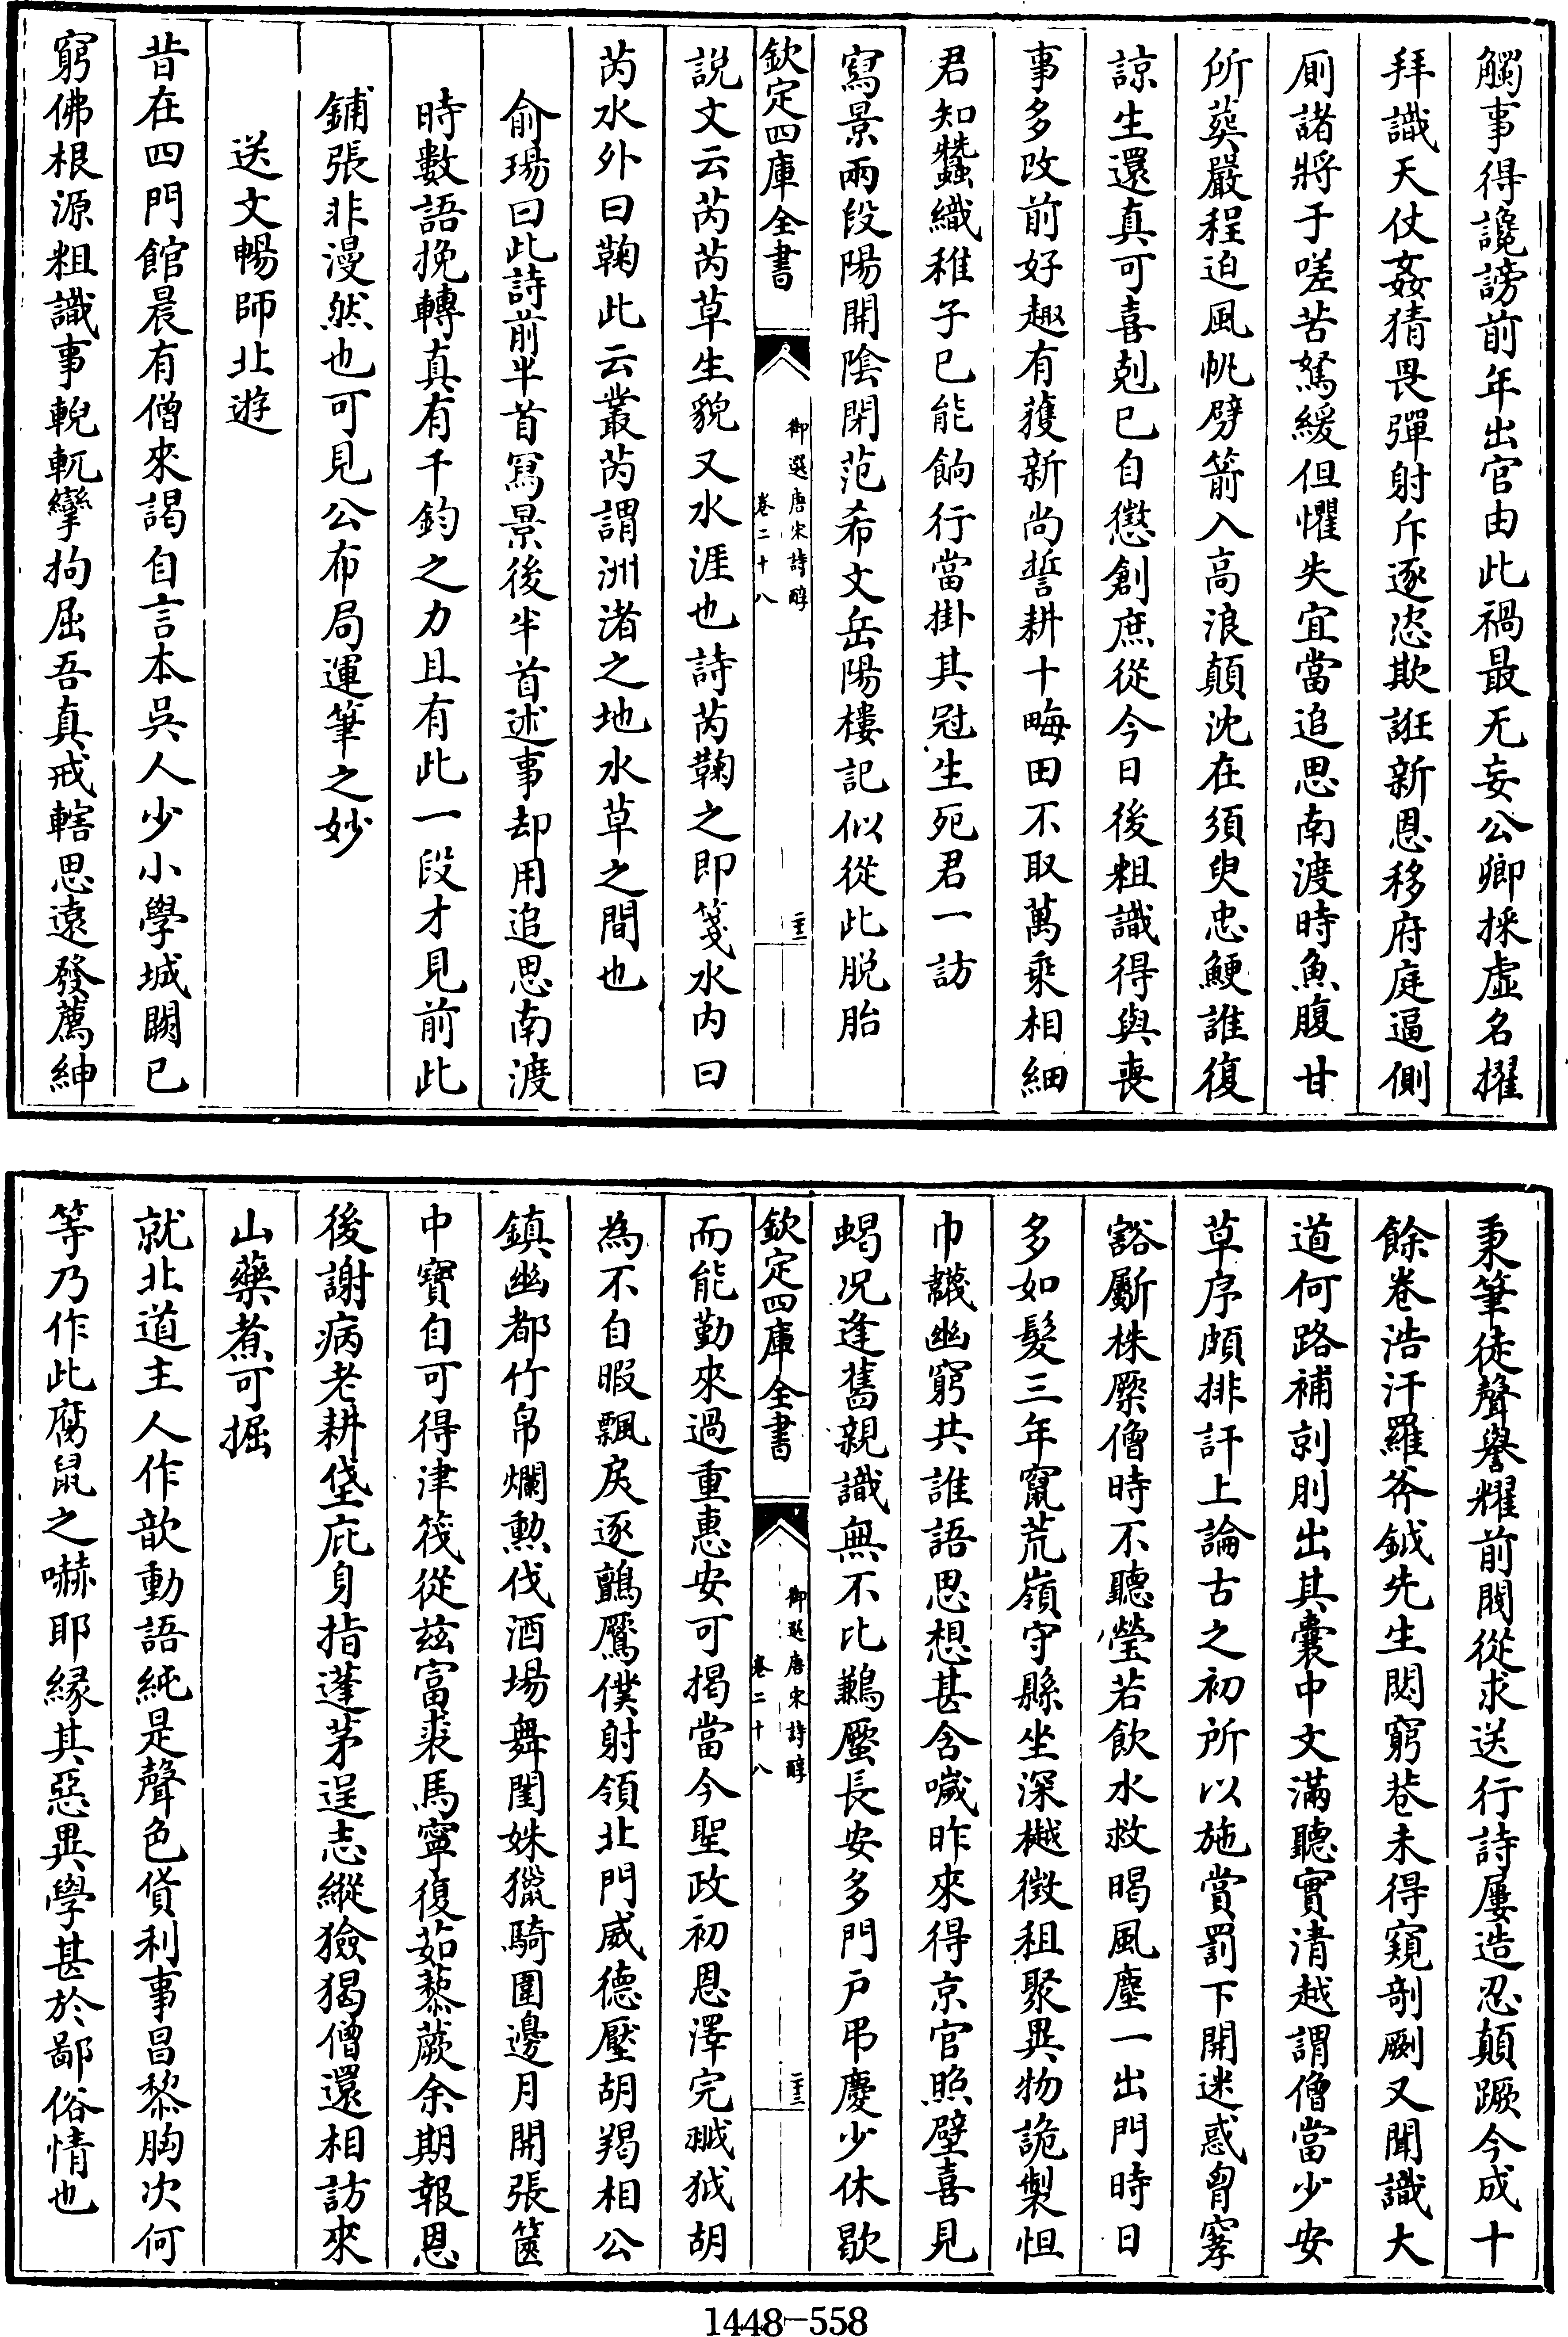 觸事得讒謗前年出官由此禍最无妄公卿採虛名擢
拜識天仗姦猜畏彈射斥逐恣欺誑新恩移府庭逼側
厠諸將于嗟苦駑緩但懼失宜當追思南渡時魚腹甘
所葬嚴程迫風帆劈箭入高浪顛沈在須臾忠鯁誰復
諒生還真可喜剋已自懲創庶從今日後粗識得與喪
事多改前好趣有獲新尚誓耕十畮田不取萬乘相細
君知蠶織稚子已能餉行當掛其冠生死君一訪
寫景兩段陽開陰閉范希文岳陽樓記似從此脱胎
欽定四庫全書
御選唐宋詩醇
卷二十八
二十二
説文云芮芮草生貌又水涯也詩芮鞫之即箋水内曰
芮水外曰鞫此云叢芮謂洲渚之地水草之間也
俞瑒曰此詩前半首寫景後半首述事却用追思南渡
時數語挽轉真有千鈞之力且有此一段才見前此
鋪張非漫然也可見公布局運筆之妙
送文暢師北遊
昔在四門館晨有僧來謁自言本吳人少小學城闕已
窮佛根源粗識事輗軏攣拘屈吾真戒轄思遠發薦紳
秉筆徒聲譽耀前閥從求送行詩屢造忍顛蹶今成十
餘卷浩汗羅斧鉞先生閟窮巷未得窺剞劂又聞識大
道何路補剠刖出其囊中文滿聽實清越謂僧當少安
草序頗排訐上論古之初所以施賞罰下開迷惑胷窙
豁斸株橜僧時不聽瑩若飲水救暍風塵一出門時日
多如髮三年竄荒嶺守縣坐深樾徵租聚異物詭製怛
巾韈幽窮共誰語思想甚含噦昨來得京官照壁喜見
蝎况逢舊親識無不比鶼蟨長安多門户弔慶少休歇
欽定四庫全書
御選唐宋詩醇
卷二十八
二十三
而能勤來過重惠安可揭當今聖政初恩澤完𤝓狘胡
為不自暇飄戾逐鸇鷢僕射領北門威德壓胡羯相公
鎮幽都竹帛爛勲伐酒場舞閨姝獵騎圍邊月開張篋
中寶自可得津筏從兹富裘馬寧復茹藜蕨余期報恩
後謝病老耕垡庇身指蓬茅逞志縱獫猲僧還相訪來
山藥煮可掘
就北道主人作歆動語純是聲色貨利事昌黎胸次何
等乃作此腐鼠之嚇耶緣其惡異學甚於鄙俗情也
1448-558